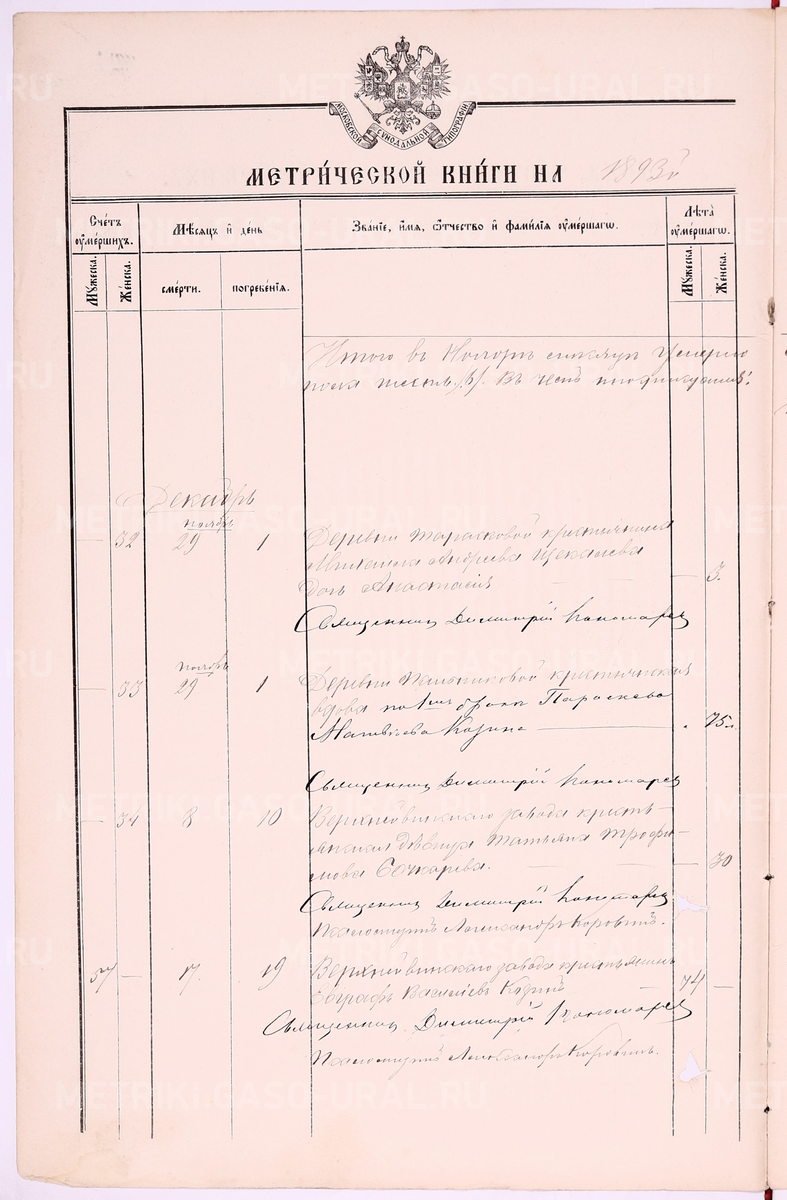 МОСКОВСКОЙ СУНОДАЛЬНОЙ ТИПОГРАФІИ
МЕТРИ́ЧЕСКОЙ КНИ́ГИ НА 1893 г.
Сче́тъ оу҆ме́ршихъ. Мѣ́сѧцъ и҆ де́нь Зва́нїе, и҆́мѧ, ѻ҆́тчество и҆ фами́лїѧ оу҆ме́ршагѡ. Лѣ́та оу҆ме́ршагѡ.
Мꙋ́жеска. Же́нска. сме́рти. погребе́нїѧ. Мꙋ́жеска. Же́нска.
Итого въ Ноябрѣ умерло
пола
Декабрь
ноябрь
— 32 29 1 Деревни Тарасковой крестьянина
Андреева Щекалева
дочь Анастасія — 3.
Священникъ Димитрій Пономаревъ
ноябрь
— 33 29 1 Деревни крестьянская
вдова по 1му браку Параскева
Матвѣева Козина 75 л.
Священникъ Димитрій Пономаревъ
— 34 8 10 Верхнейвинскаго завода кресть-
янская дѣвица Татьяна Трофи-
мова Бочкарева. — 70
Священникъ Димитрій Пономаревъ
Псаломщикъ Александръ Коровинъ.
57 — 17. 19 Верхнейвинскаго завода крестьянинъ
Евграфъ Василіевъ Козинъ 74 —
Священникъ Димитрій Пономаревъ
Псаломщикъ Александръ Коровинъ.
METRIKI.GASO-URAL.RU